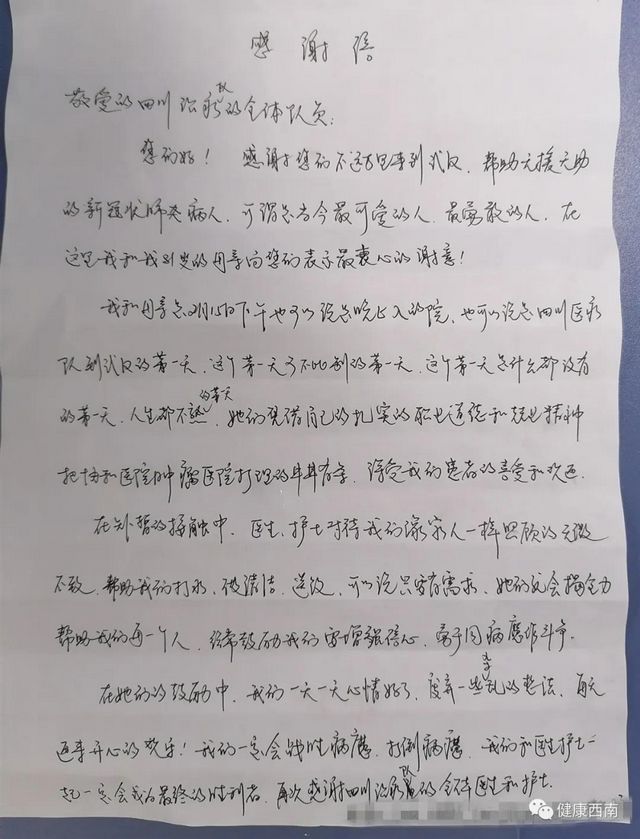 感谢信
敬爱的四川治疗队的全体队员:
您们好! 感谢您们不远万里来到武汉, 帮助无援无助
的新冠状肺炎病人, 可谓是当今最可爱的人, 最勇敢的人, 在
这里我和我 的母亲向您们表示最衷心的谢意!
我和母亲是2月15日下午也可以说是晚上入的院, 也可以说是四川医疗
队到武汉的第一天, 这个第一天可不比别的第一天, 这个第一天是什么都没有
的第一天, 人生都不熟的第一天, 她们凭借自己的扎实的职业道德和 精神
把协和医院肿瘤医院打理的井井有条, 深受我们患者的喜爱和欢迎.
在短暂的接触中, 医生、护士对待我们像家人一样照顾的无微
不致, 帮助我们打水, 做清洁, 送饭, 可以说只要有需求, 她们总会竭尽全力
帮助我们每一个人, 经常鼓励我们要增强信心, 勇于同病魔作斗争.
在她们的鼓励中, 我们一天一天心情好了, 废弃一些杂乱的想法, 每天
迎来开心的欢乐! 我们一定会战胜病魔, 打倒病魔, 我们和医生护士一
起一定会成为最终的胜利者, 再次感谢四川治疗队的全体医生和护士.
健康西南